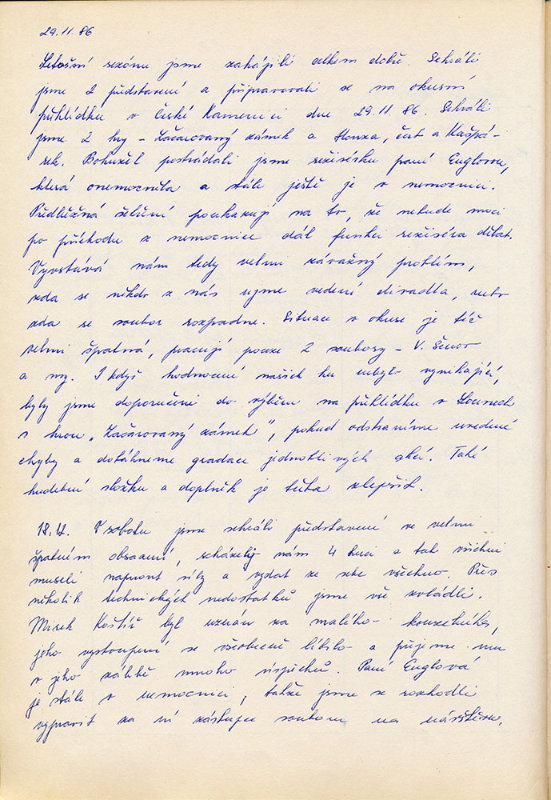 29.11.86
Letošní sezónu jsme zahájili celkem dobře. Sehráli
jsme 2 představení a připravovali se na okresní
přehlídku v České Kamenici dne 29.11.86. Sehráli
jsme 2 hry - Začarovaný zámek a Honza, čert a Kašpá-
rek. Bohužel postrádali jsme režisérku paní Englovou,
která onemocněla a stále ještě je v nemocnici.
Předběžná šetření poukazují na to, že nebude moci
po příchodu z nemocnice dál funkci režiséra dělat.
Vyvstává nám tedy velmi závažný problém,
zda se někdo z nás ujme vedení divadla, nebo
zda se soubor rozpadne. Situace v okrese je též
velmi špatná, pracují pouze 2 soubory - V. Šenov
a my. I když hodnocení našich her nebylo vynikající,
byly jsme doporučeni do výběru na přehlídku v Lounech
s hrou "Začarovaný zámek", pokud odstraníme uvedené
chyby a dotáhneme gradace jednotlivých akcí. Také
hudební složku a doplněk je třeba zlepšit.
V sobotu jsme sehráli představení ve velmi
špatném obsazení, scházely nám 4 herci a tak všichni
museli napnout síly a vydat ze sebe všechno. Přes
několik technických nedostatků jsme vše zvládli.
Mirek byl uznán za malého kouzelníka,
jeho vystoupení se všeobecně líbilo a přejeme mu
v jeho zálibě mnoho úspěchů. Paní Englová
je stále v nemocnici, takže jsme se rozhodli
vypravit za ní zástupce souboru na návštěvu.